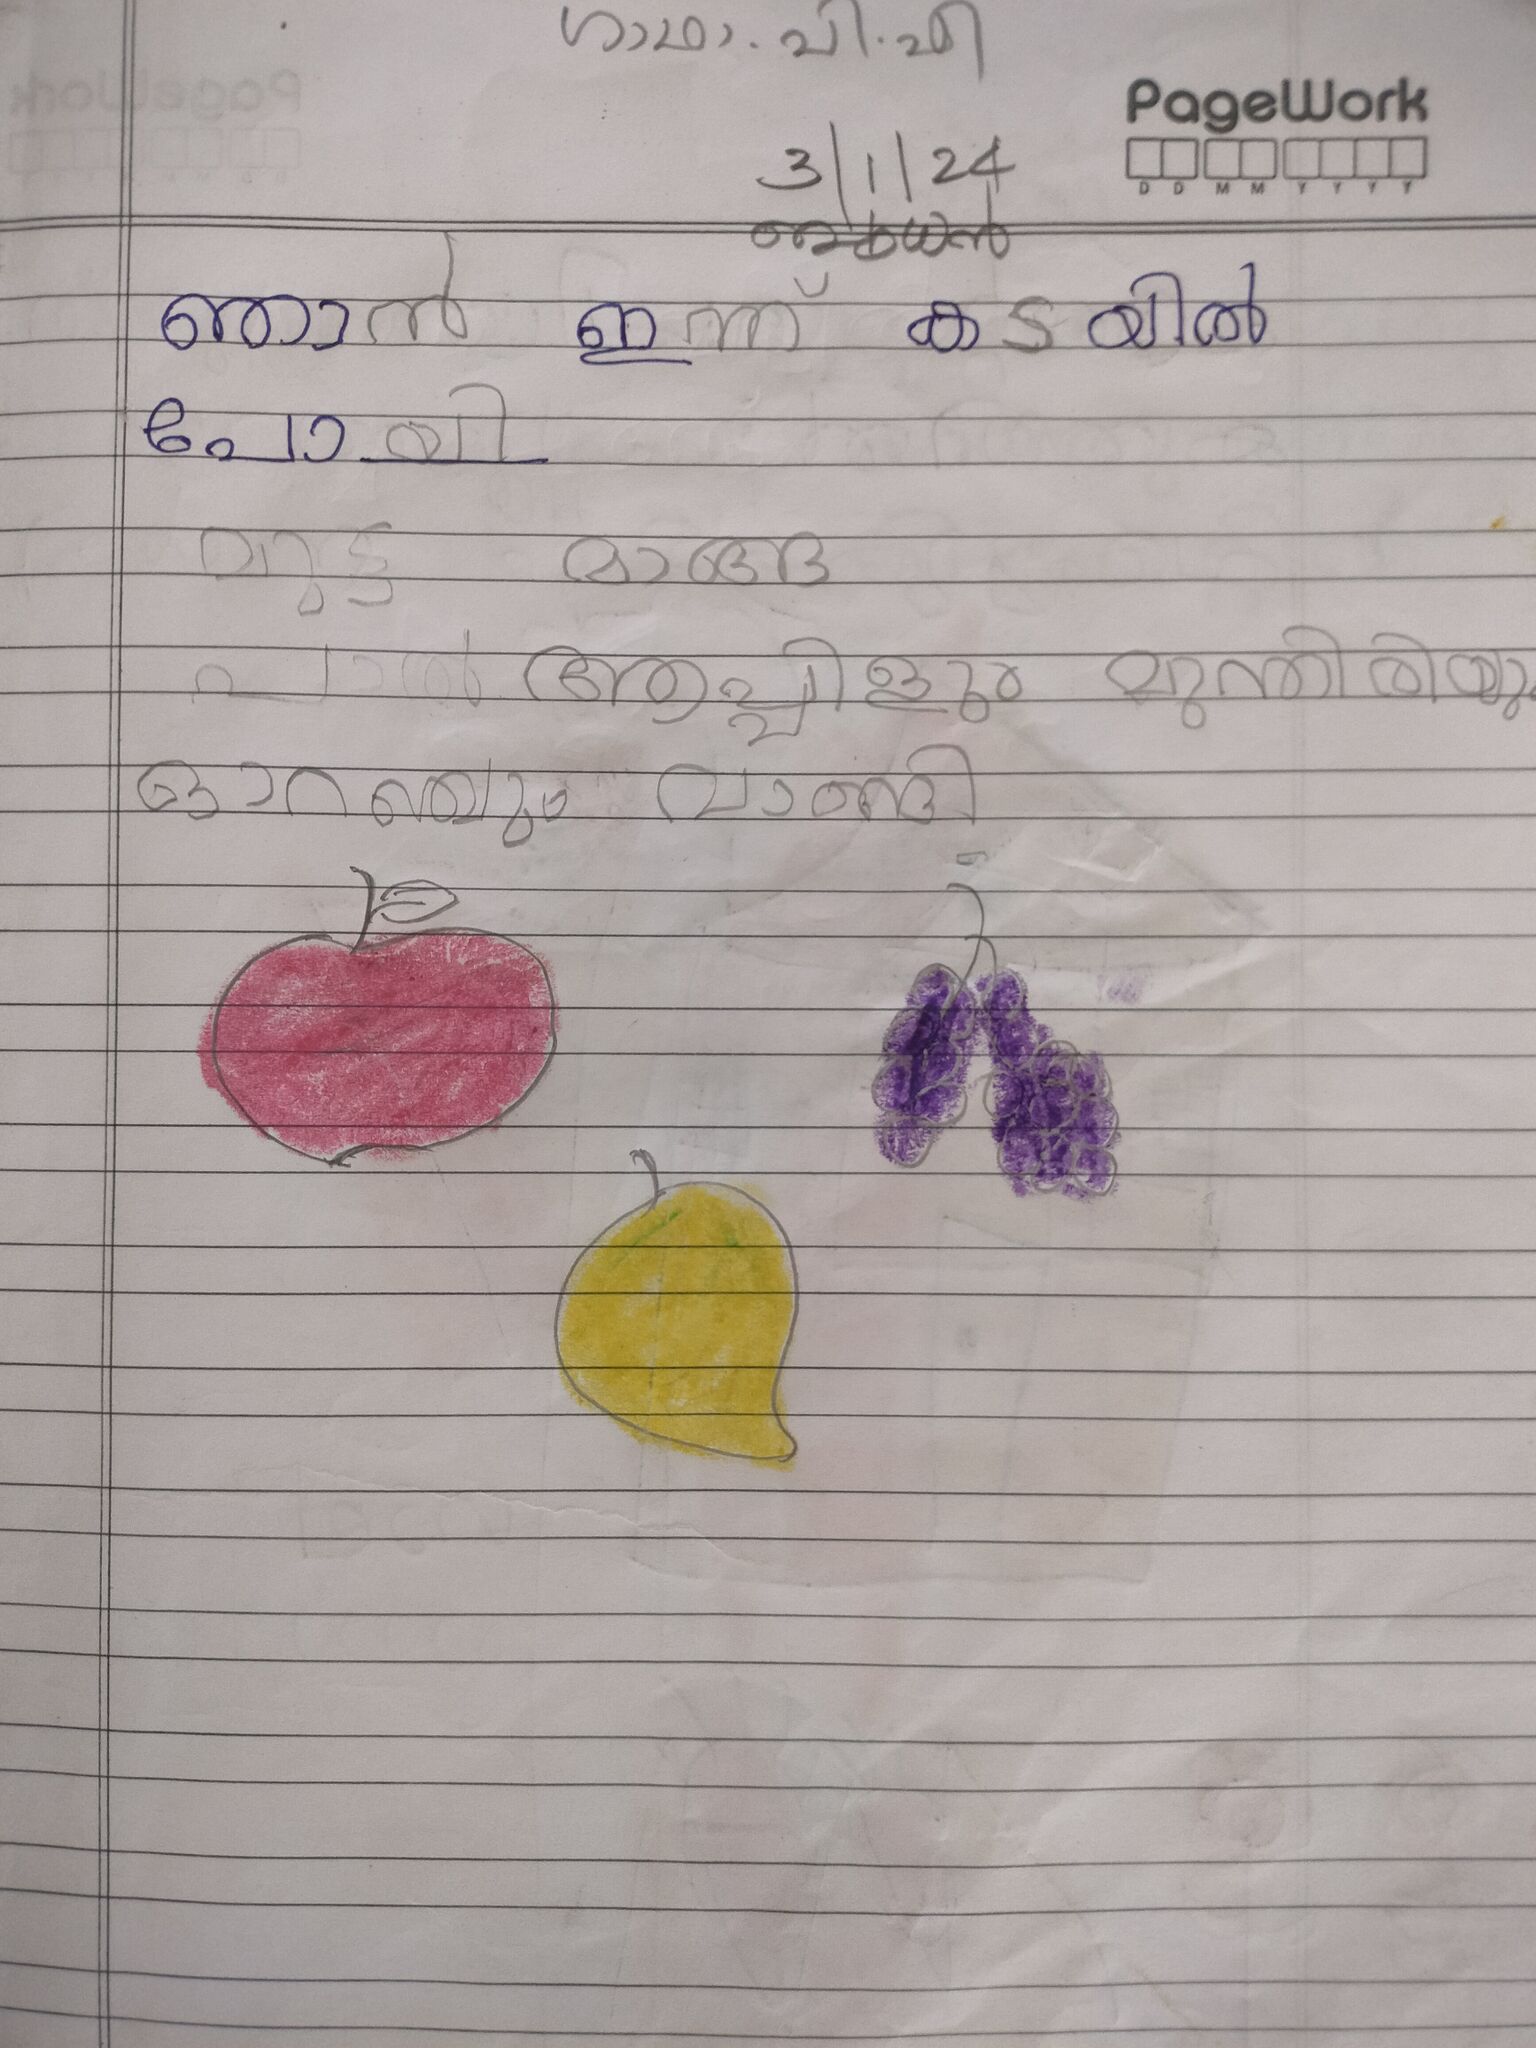 PageWork
3/1/24
ബുധൻ
D D M M Y Y Y Y
ഞാൻ ഇന്ന് കടയിൽ
പോയി
മുട്ട മാങ്ങ
പാൽ ആപ്പിളും മുന്തിരിയും
ഓറഞ്ചും വാങ്ങി